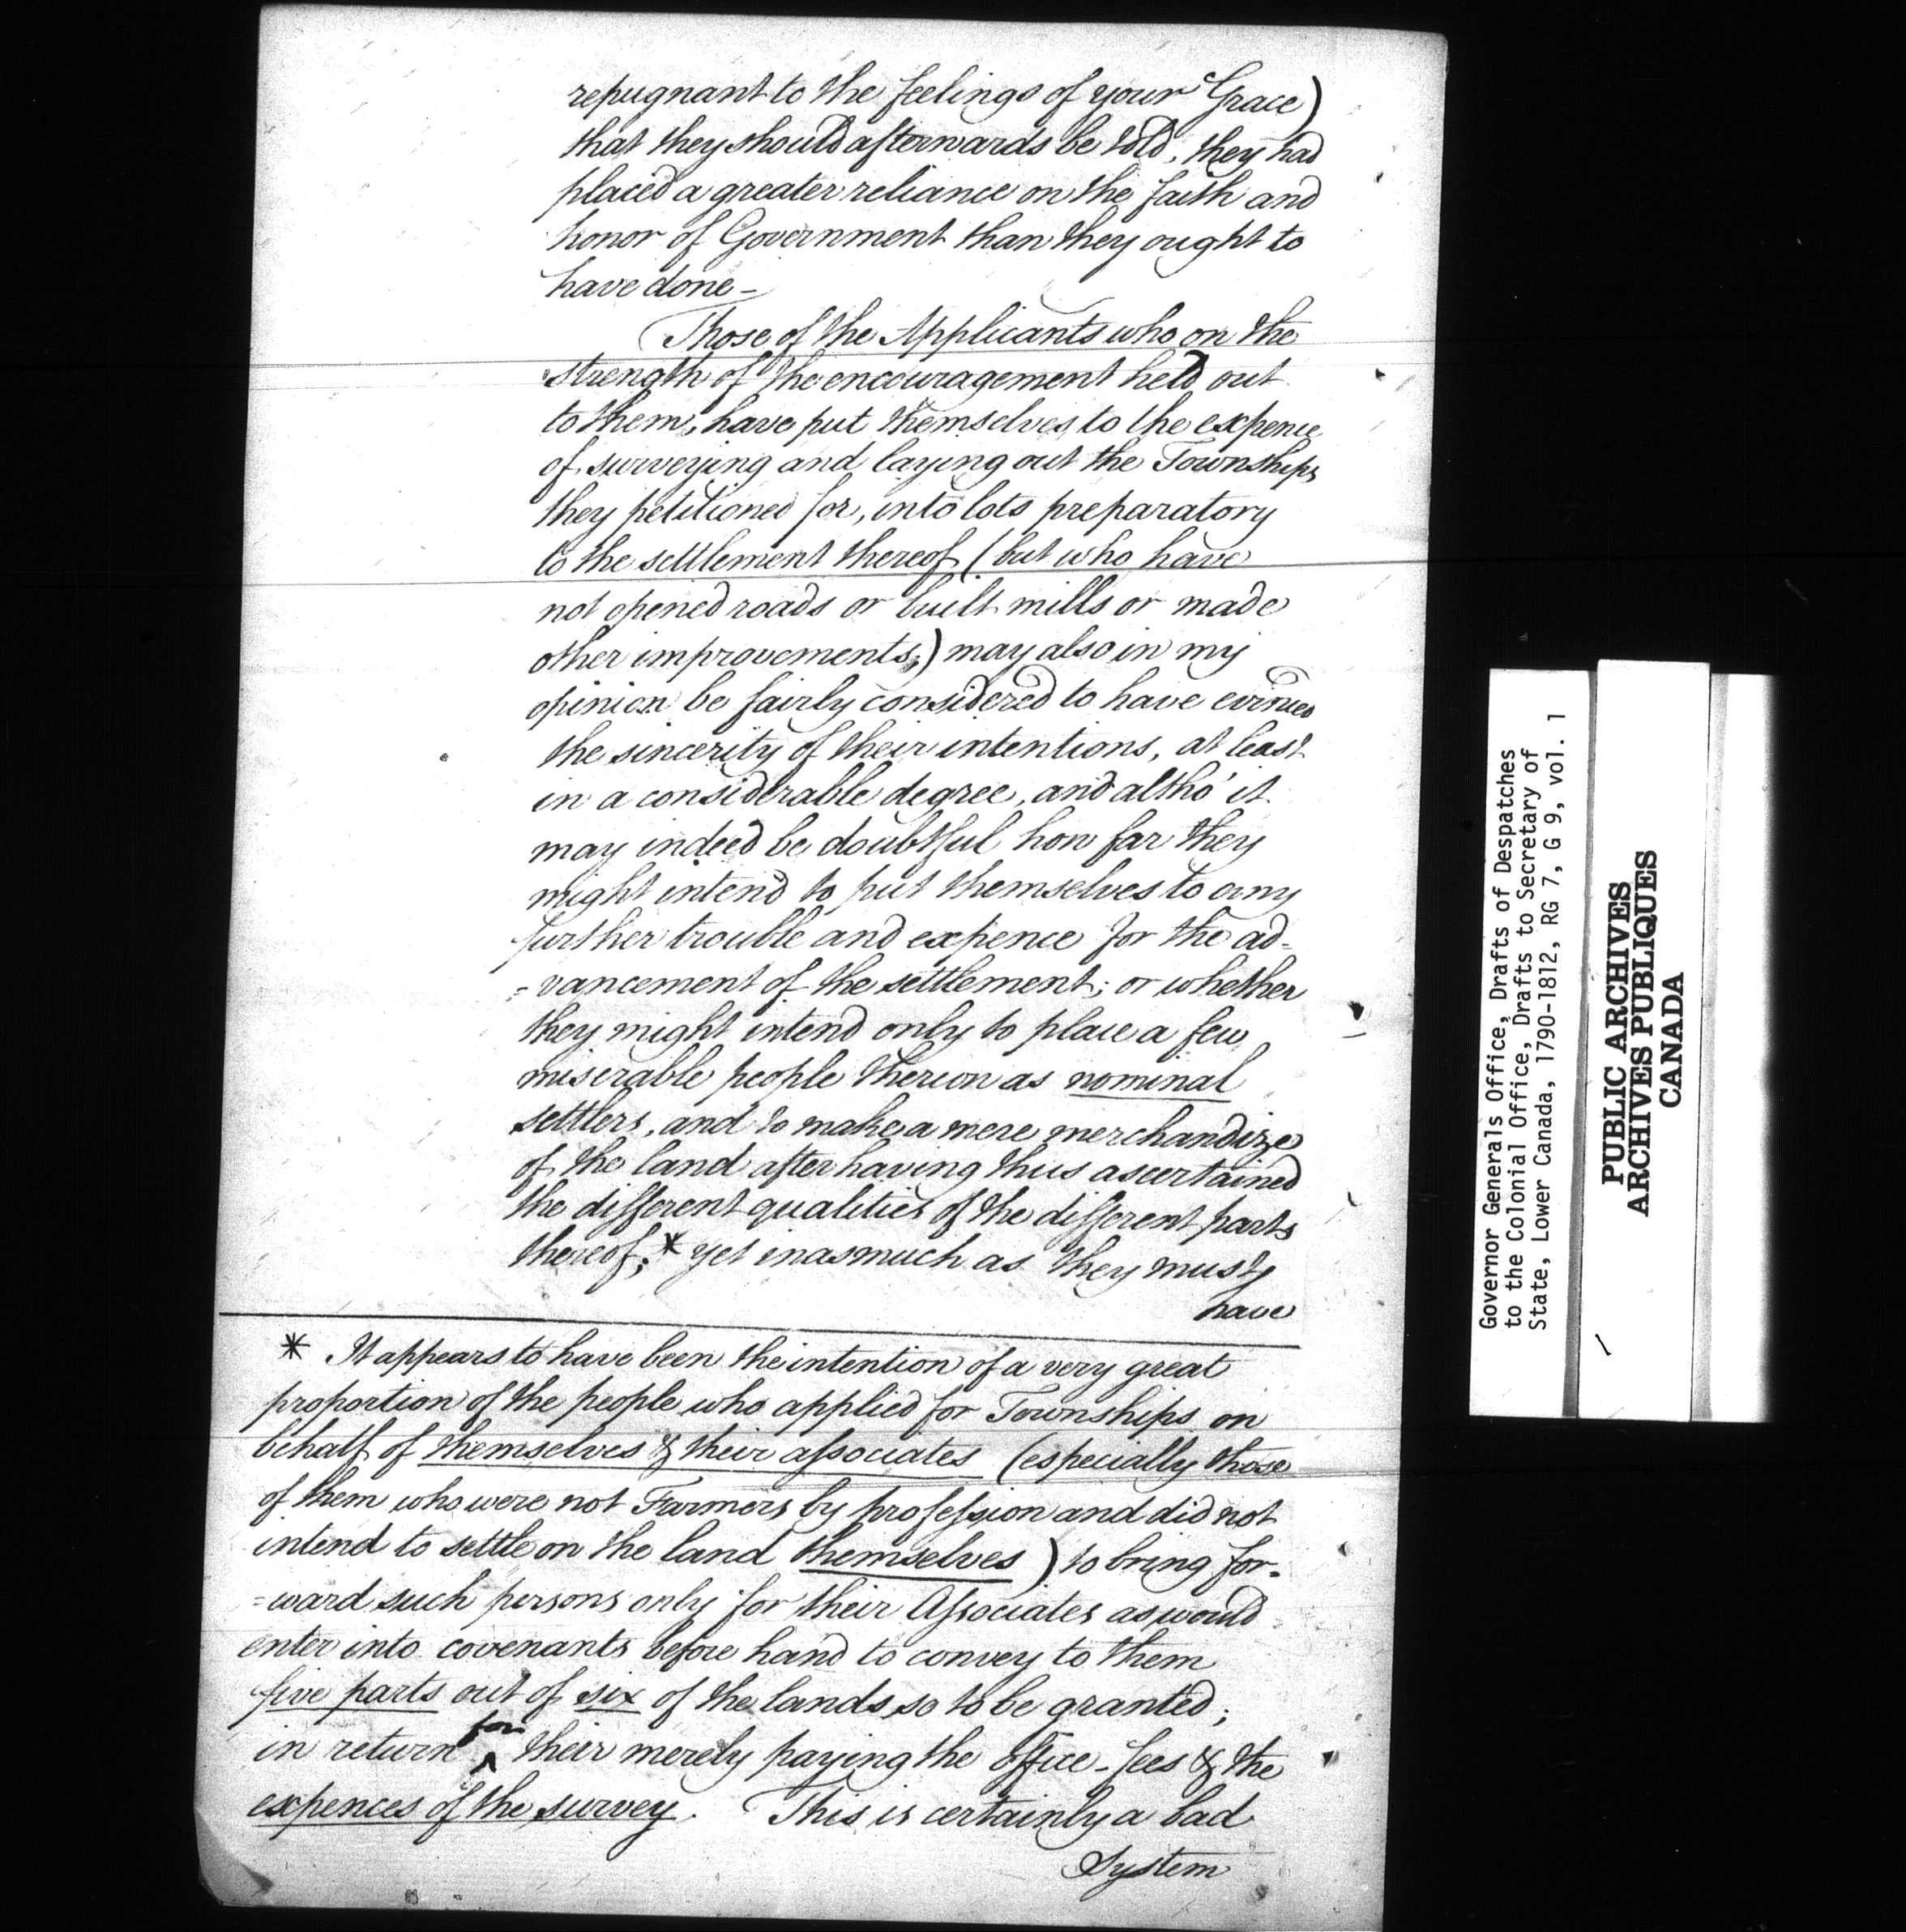 repugnant to the feelings of your Grace)
that they should afterwards be told, they had
placed a greater reliance on the faith and
honor of Government than they ought to
have done-
Those of the Applicants who on the
strength of the encouragement held out
to them, have put themselves to the expence
of surveying and laying out the Townships
they petitioned for, into lots preparatory
to the settlement thereof (but who have
not opened roads or built mills or made
other improvements;) may also in my
opinion be fairly considered to have evinced
the sincerity of their intentions, at least
in a considerable degree, and altho' it
may indeed be doubtful how far they
might intend to put themselves to any
further trouble and expence for the ad=
=vancement of the settlement; or whether
they might intend only to place a few
miserable people thereon as nominal
settlers, and to make a mere merchandize
of the land after having thus ascertained
the different qualities of the different parts
thereof;* yet inasmuch as they must
have
* It appears to have been the intention of a very great
proportion of the people who applied for Townships on
behalf of themselves & their associates (especially those
of them who were not Farmers by profession and did not
intend to settle on the land themselves) to bring for=
=ward such persons only for their Associates as would
enter into covenants before hand to convey to them
five parts out of six of the lands so to be granted;
in return for their merely paying the office-fees & the
expences of the survey. This is certainly a bad
System
Governor Generals Office, Drafts of Despatches
to the Colonial Office, Drafts to Secretary of
State, Lower Canada, 1790-1812, RG 7, G 9, vol. 1
PUBLIC ARCHIVES
ARCHIVES PUBLIQUES
CANADA